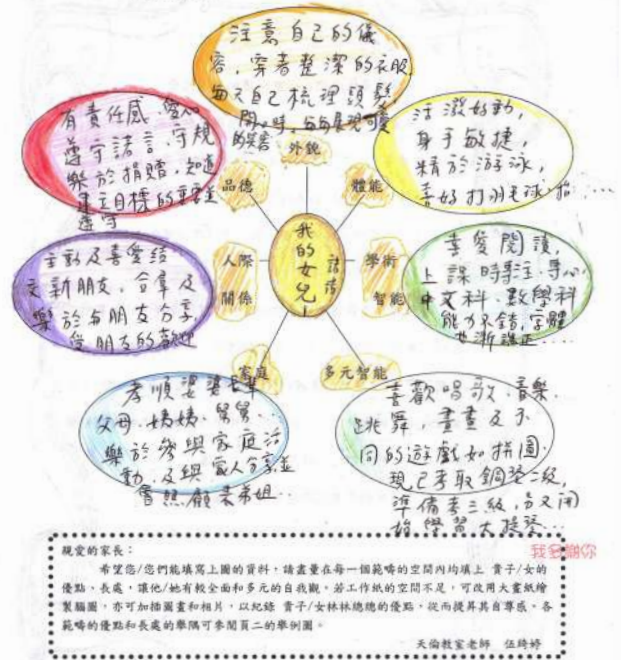 注意自己的儀
容，穿著整潔的衣服
每天自己梳理頭髮，
開心時，每每展現可愛
的笑容
外貌
有責任感、愛心
遵守諾言、守規
樂於捐贈，知道
建立目標的重要並
遵守
品德
活潑好動，
身手敏捷，
精於游泳，
喜好打羽毛球、
體能
主動及喜愛結
交新朋友，合羣及
樂於與朋友分享，
受朋友的歡迎
人際
關係
我的女兒
喜愛閱讀，
上課時專注、專心
中文科、數學科
能力不錯，字體
學術
智能
孝順婆婆
父母、姨姨、舅舅…
樂於參與家庭活
動，及與家人分享並
會照顧表弟姐…
家庭
喜歡唱歌、音樂、
跳舞，畫畫及不
同的遊戲如拼圖，
現已考取鋼琴二級，
準備考三級，另又開
始學習大提琴…
多元智能
我多謝你
親愛的家長：
希望您/您們能填寫上圖的資料，請盡量在每一個範疇的空間內均填上 貴子/女的
優點、長處，讓他/她有較全面和多元的自我觀。若工作紙的空間不足，可改用大畫紙繪
製腦圖，亦可加插圖畫和相片，以紀錄 貴子/女林林總總的優點，從而提昇其自尊感。各
範疇的優點和長處的舉隅可參閱頁二的舉例圖。
天倫教室老師 伍綺婷